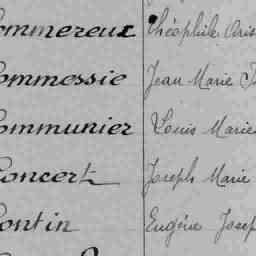 ommereux Théophile Aris
ommessie Jean Marie
ommunier Louis Marie
oncert Joseph Marie
ontin Eugène Josep